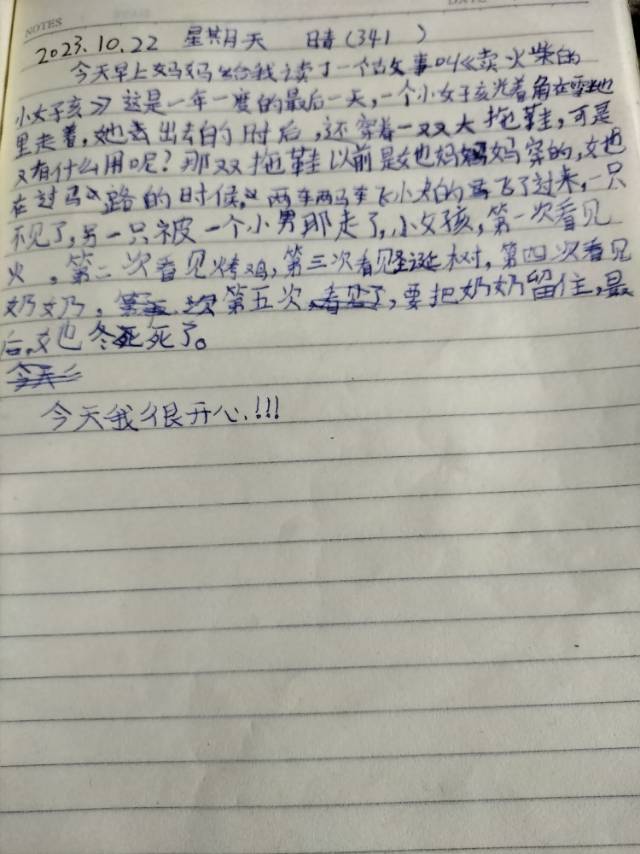 NOTES
2023.10.22 星期天 晴(341)
今天早上妈妈给我读了一个故事叫《卖火柴的
小女孩》这是一年一度的最后一天,一个小女孩光着角在雪地
里走着,她去出去的时后,还穿着一双大拖鞋,可是
又有什么用呢?那双拖鞋以前是她妈妈穿的,她
在过马路的时候,两车两马车飞小的飞了过来,一只
不见了,另一只被一个小男那走了,小女孩,第一次看见
火,第二次看见烤鸡,第三次看见圣诞树,第四次看见
奶奶,第五次,要把奶奶留住,最
后,她冬死了。
今天我很开心.!!!